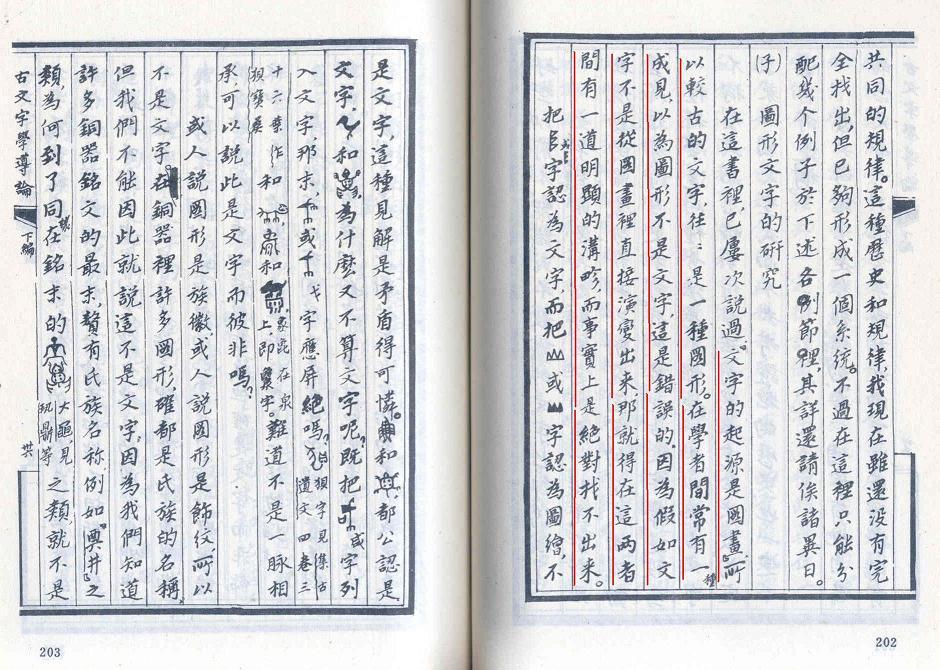 共同的規律。這種歷史和規律,我現在雖還没有完
全找出,但已夠形成一個系統。不過在這裡只能分
配幾个例子於下述各例節裡,其詳還請俟諸異日。
(子) 圖形文字的研究
在這書裡已屢次説過文字的起源是圖畫,所
以較古的文字,往:是一種圖形。在學者間常有一種
成見,以為圖形不是文字,這是錯誤的,因為假如文
字不是從圖畫裡直接演變出來,那就得在這兩者
間有一道明顯的溝畛,而事實上是絕對找不出來。
把字認為文字,而把或字認為圖繪,不
202
是文字,這種見解是矛盾得可憐。和,都公認是
文字,和為什麽又不算文字呢?既把或字列
入文字,那末,或戈字應屏絕嗎?狽字見集古遺文四卷三
十六葉作狽寶彝和和上,即字。難道不是一脉相
承可以説此是文字而彼非嗎?
或人説圖形是族徽,或人説圖形是飾紋,所以
不是文字。在銅器裡許多圖形,確都是氏族的名稱,
但我們不能因此就説這不是文字,因為我們知道
許多銅器銘文的最末,贅有氏族名称,例如「冀井」之
類,為何到了同樣在銘末的大黽,見訊鼎等之類,就不是
古文字學導論 下編 共
203